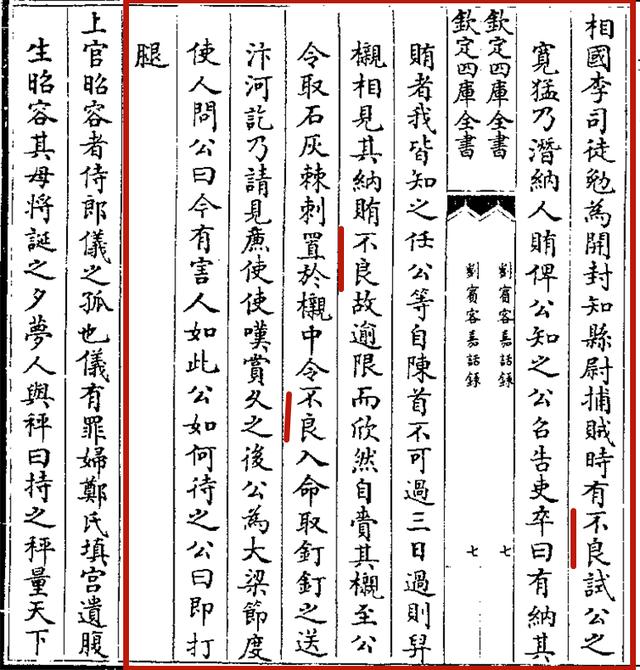 相國李司徒勉為開封知縣尉捕賊時有不良試公之
寛猛乃潛納人賄俾公知之公名告吏卒曰有納其
欽定四庫全書
劉賓客嘉話錄
七
欽定四庫全書
劉賓客嘉話錄
七
賄者我皆知之任公等自陳首不可過三日過則舁
櫬相見其納賄不良故逾限而欣然自賫其櫬至公
令取石灰棘刺置於櫬中令不良入命取釘釘之送
汴河訖乃請見廉使使嘆賞久之後公為大梁節度
使人問公曰今有害人如此公如何待之公曰即打
腿
上官昭容者侍郎儀之孤也儀有罪婦鄭氏填宫遺腹
生昭容其母將誕之夕夢人與秤曰持之秤量天下